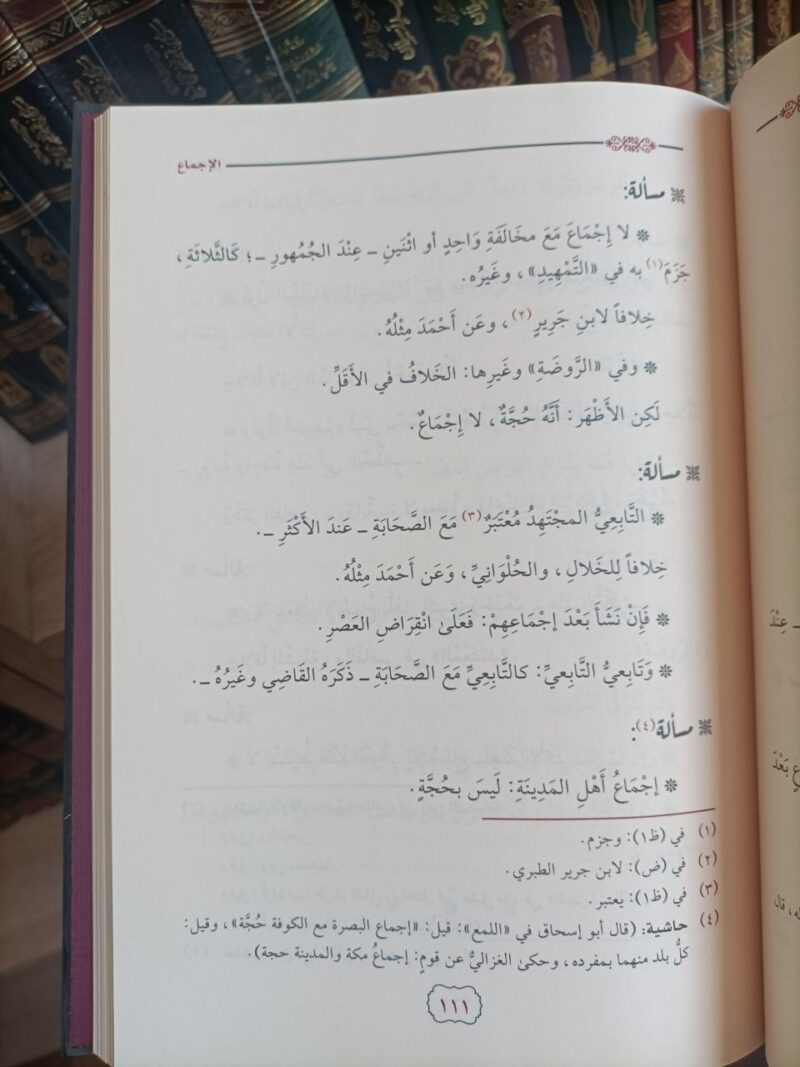 الإجماع
مسألة:
لا إِجْمَاعَ مَعَ مخَالَفَةِ وَاحِدٍ أو اثْنَينِ ـ عِنْدَ الجُمُهورِ ـ؛ كَالثَّلاثَةِ،
جَزَمَ(١) به في «التَّمْهِيدِ»، وغَيرُه.
خِلافاً لابنِ جَرِيرٍ(٢)، وعَن أَحْمَدَ مِثْلُهُ.
وفي «الرَّوضَةِ» وغَيرِها: الخَلافُ في الأَقَلِّ.
لَكِن الأَظْهَر: أَنَّهُ حُجَّةٌ، لا إِجْمَاعٌ.
مسألة:
التَّابِعِيُّ المجْتَهِدُ مُعْتَبَرٌ(٣) مَعَ الصَّحَابَةِ ـ عَندَ الأَكْثَرِ ـ.
خِلافاً لِلخَلالِ، والحُلْوَانِيِّ، وَعَن أَحْمَدَ مِثْلُهُ.
فَإِنْ نَشَأَ بَعْدَ إجْمَاعِهِمْ: فَعَلَىٰ انْقِرَاضِ العَصْرِ.
وَتَابِعيُّ التَّابِعيِّ: كالتَّابِعِيِّ مَعَ الصَّحَابَةِ ـ ذَكَرَهُ القَاضِي وغَيرُهُ ـ.
مسألة(٤):
إجْمَاعُ أَهْلِ المَدِينَةِ: لَيسَ بِحُجَّةٍ.
(١) في (ظ١): وجزم.
(٢) في (ض): لابن جرير الطبري.
(٣) في (ظ١): يعتبر.
(٤) حاشية: (قال أبو إسحاق في «اللمع»: قيل: «إجماع البصرة مع الكوفة حُجَّة»، وقيل:
كلُّ بلد منهما بمفرده، وحكىٰ الغزاليُّ عن قومٍ: إجماعُ مكة والمدينة حجة).
١١١